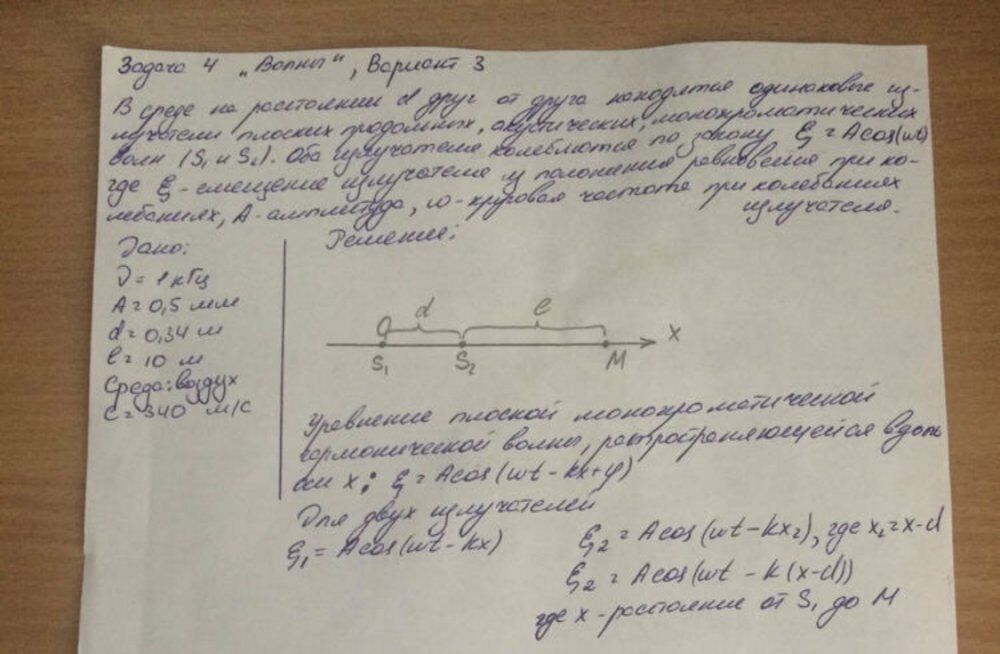 Задача 4 „Волны“, Вариант 3
В среде на расстоянии d друг от друга находятся одинаковые из-
лучатели плоских продольных, акустических, монохроматических
волн (S₁ и S₂). Оба излучателя колеблются по закону ξ = Acos(ωt)
где ξ - смещение излучателя из положения равновесия при ко-
лебаниях, A - амплитуда, ω - круговая частота при колебаниях
излучателя.
Дано:
ν = 1 кГц
A = 0,5 мм
d = 0,34 м
l = 10 м
Среда: воздух
C = 340 м/с
Решение:
d l
O S₁ S₂ M X
Уравнение плоской монохроматической
гармонической волны, распространяющейся вдоль
оси x: ξ = Acos(ωt - kx + φ)
Для двух излучателей
ξ₁ = Acos(ωt - kx)
ξ₂ = Acos(ωt - kx₂), где x₂ = x - d
ξ₂ = Acos(ωt - k(x-d))
где x - расстояние от S₁ до M